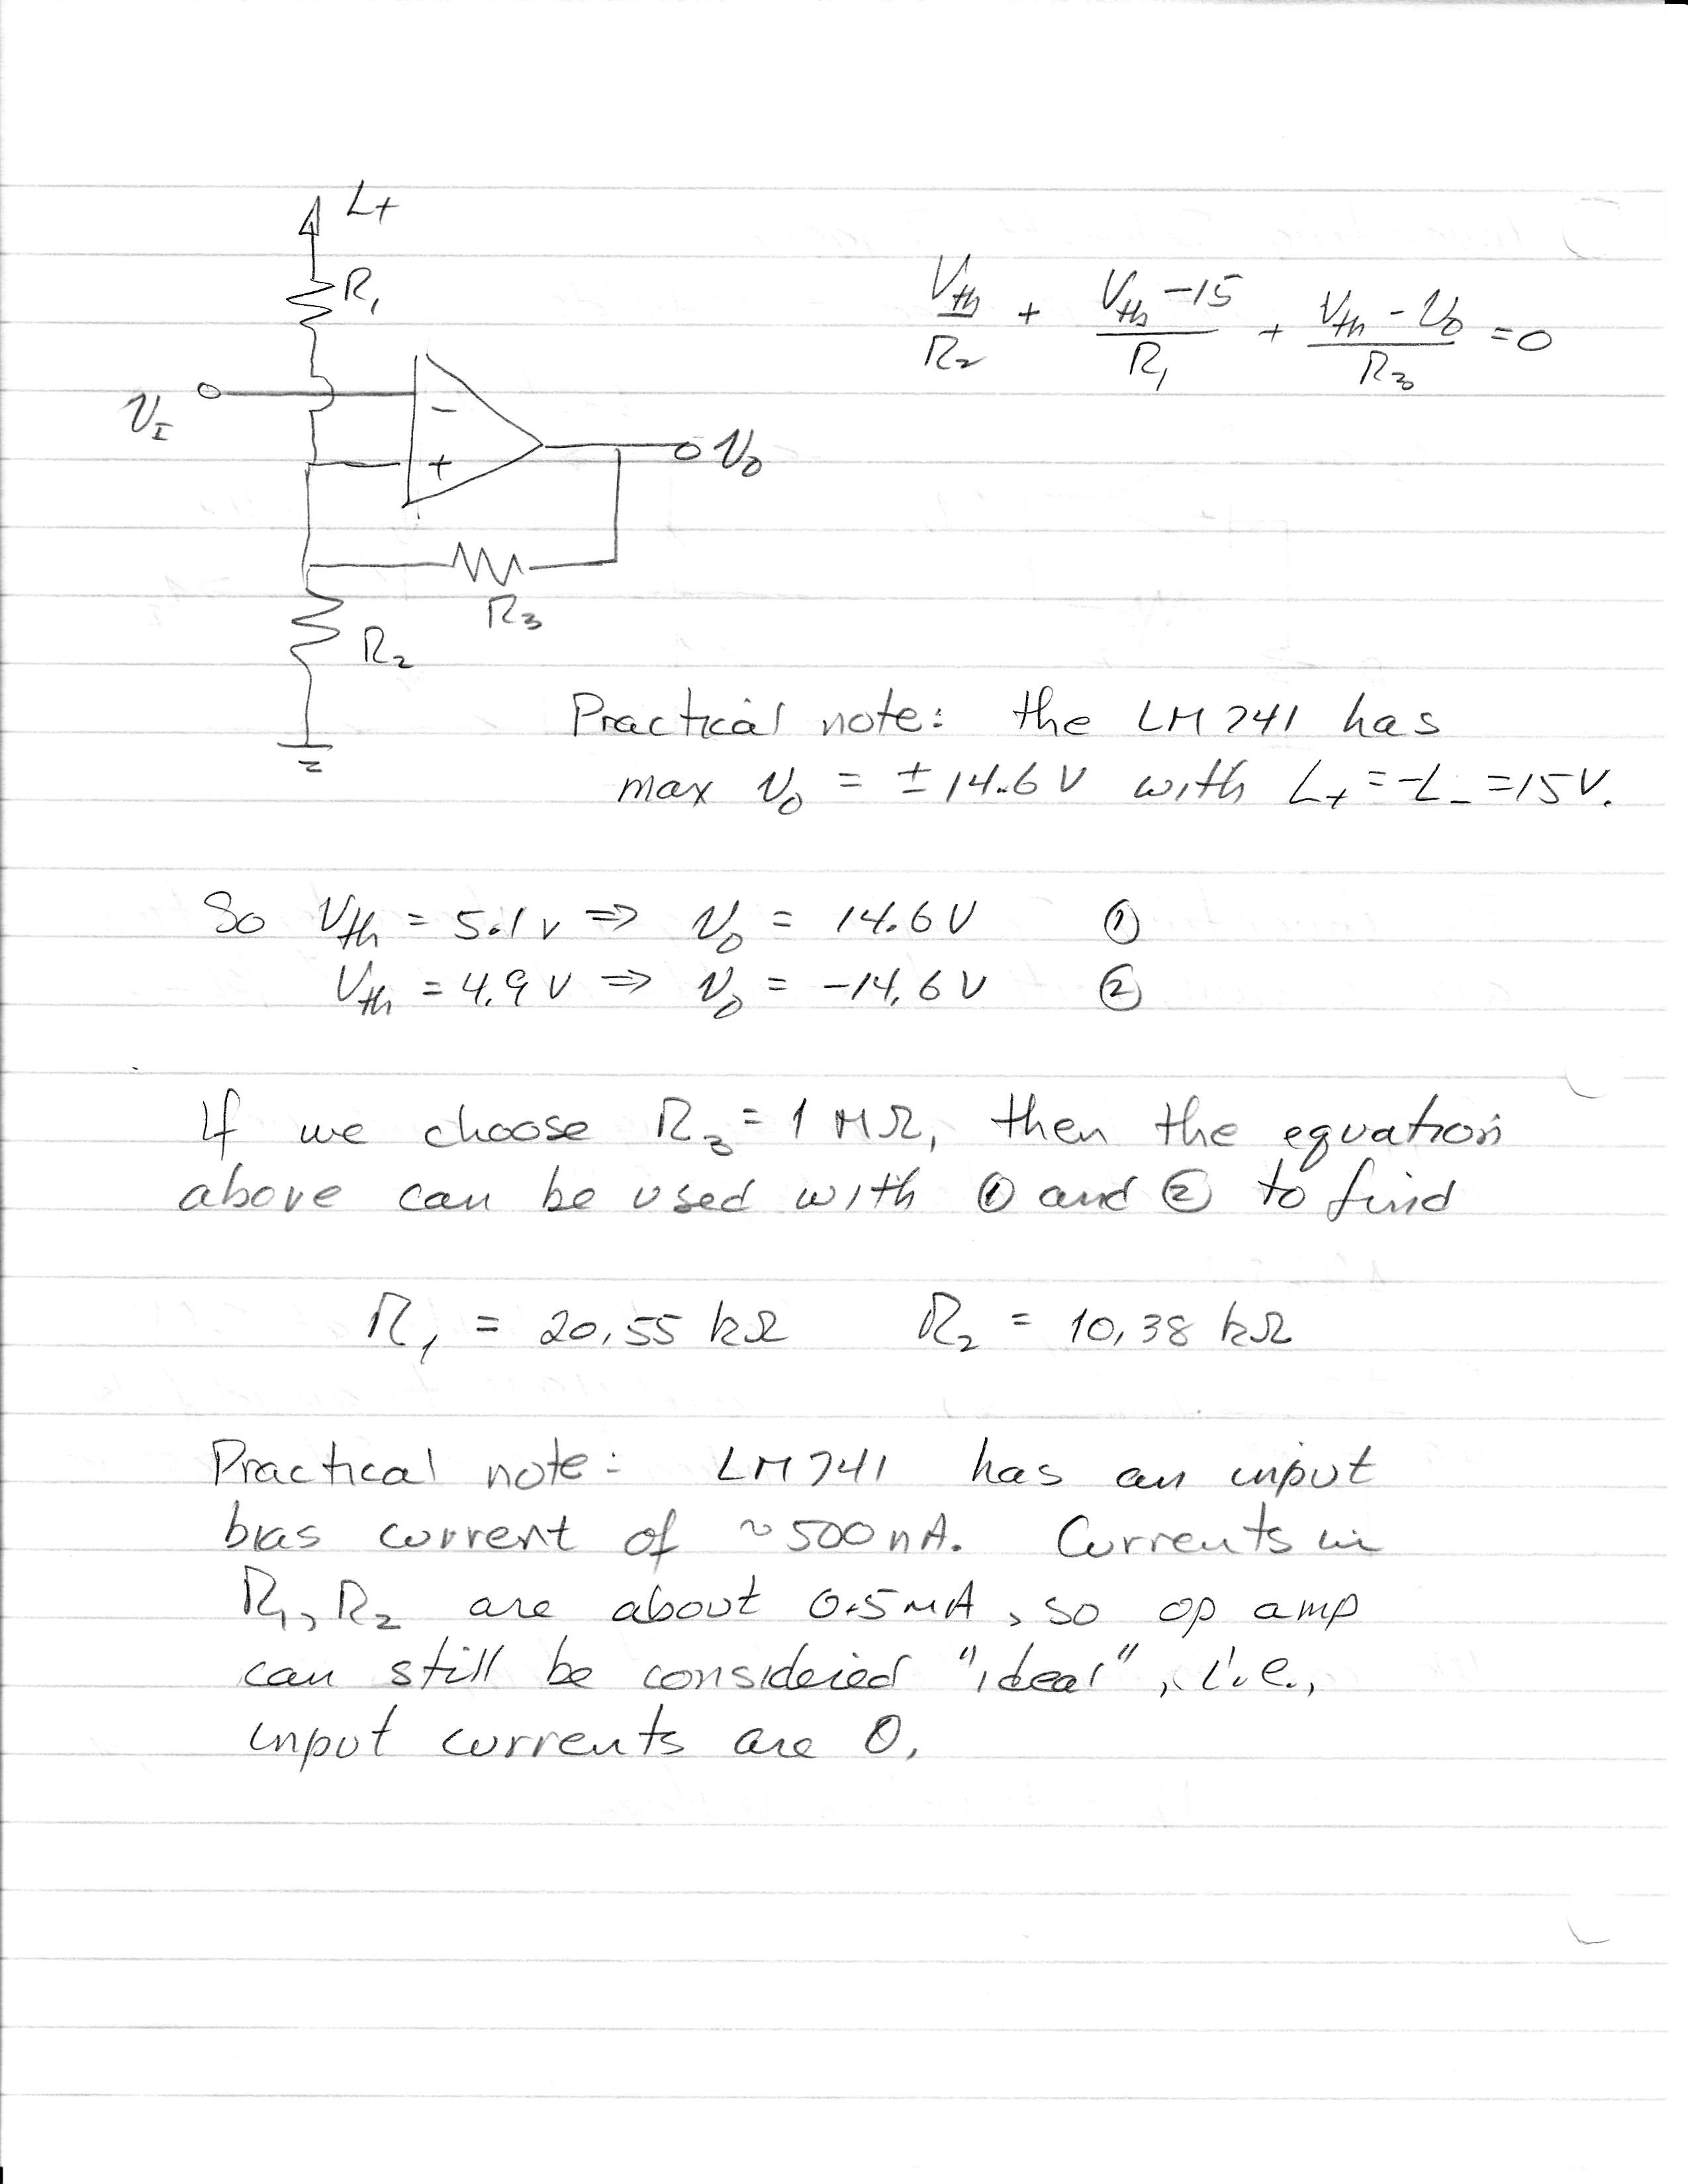 L+
R₁
V_th/R₂ + (V_th - 15)/R₁ + (V_th - v_o)/R₃ = 0
v_I
-
+
v_o
R₃
R₂
Practical note: the LM741 has
max v_o = ± 14.6 V with L+ = -L- = 15V.
So V_th = 5.1 v ⇒ v_o = 14.6 V ①
V_th = 4.9 V ⇒ v_o = -14.6 V ②
If we choose R₃ = 1 MΩ, then the equation
above can be used with ① and ② to find
R₁ = 20.55 kΩ R₂ = 10.38 kΩ
Practical note: LM741 has an input
bias current of ~500 nA. Currents in
R₁, R₂ are about 0.5 mA, so op amp
can still be considered "ideal", i.e.,
input currents are 0.